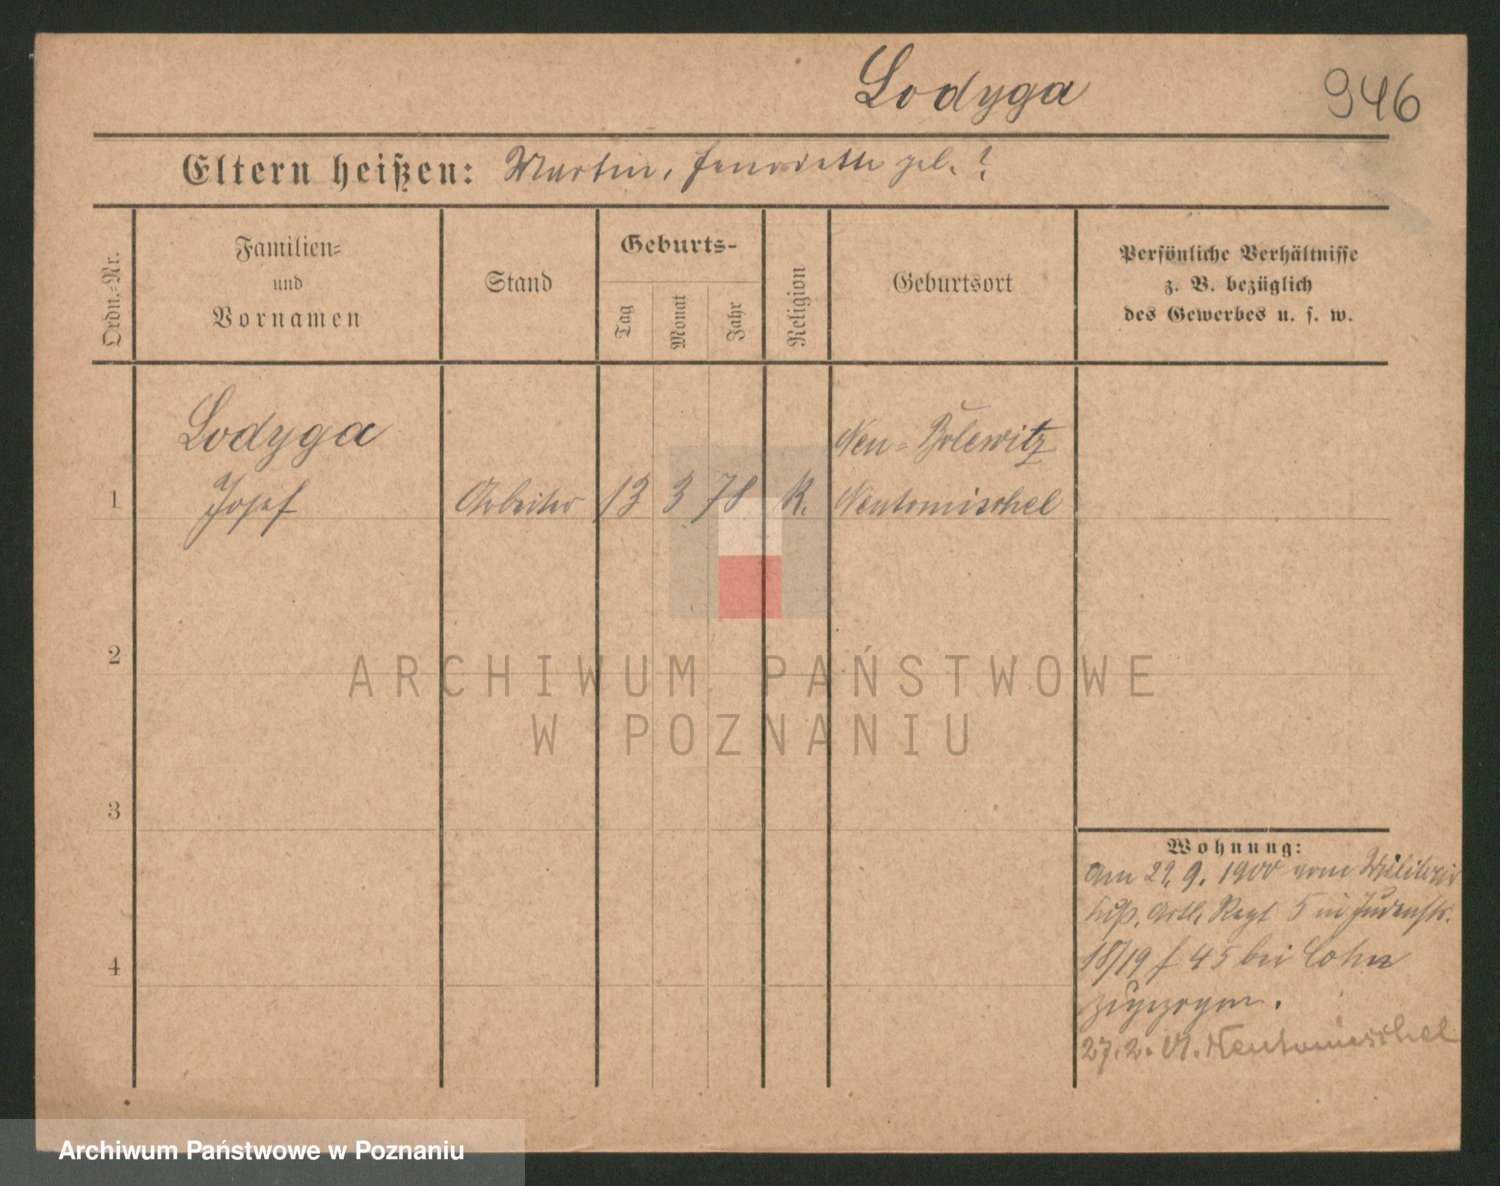 Lodyga
946
Eltern heißen: Martin, Henriette geb. ?
Ordn.-Nr.
Familien-
und
Vornamen
Stand
Geburts-
Tag
Monat
Jahr
Religion
Geburtsort
Persönliche Verhältnisse
z. B. bezüglich
des Gewerbes u. s. w.
Lodyga
Neu-Bolewitz
1 Josef Arbeiter 13 3 78 K. Neutomischel
2
ARCHIWUM PAŃSTWOWE
W POZNANIU
3
Wohnung:
Am 22. 9. 1900 vom Militair
Fuß. Artl. Regt 5 in Judenstr.
4
18/19 f 45 bei Cohn
zugezogen.
27. 2. 01. Neutomischel
Archiwum Państwowe w Poznaniu